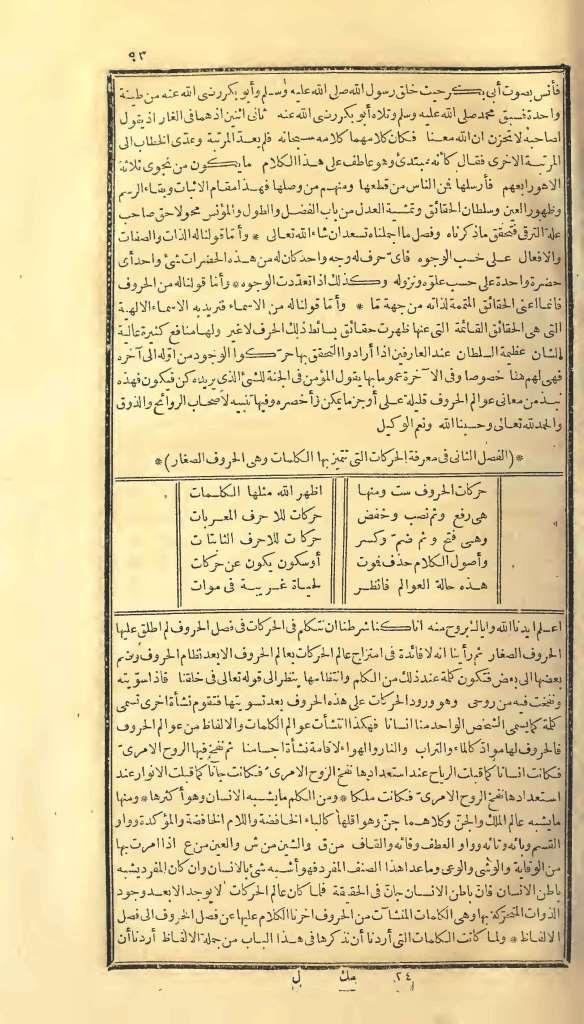 ٩٣
فأنس بصوت أبي بكر حيث خلق رسول الله صلى الله عليه وسلم وأبو بكر رضي الله عنه من طينة
واحدة فسبق محمد صلى الله عليه وسلم وتلاه أبو بكر رضي الله عنه ثاني اثنين اذ هما في الغار اذ يقول
لصاحبه لا تحزن ان الله معنا فكان كلامهما كلامه سبحانه فلم يعد المرتبة وعدى الخطاب الى
المرتبة الاخرى فقال كأنه مبتدئ وهو عاطف على هذا الكلام ما يكون من نجوى ثلاثة
الا هو رابعهم فأرسلها فمن الناس من قطعها ومنهم من وصلها فهذا مقام الاثبات وبقاء الرسم
وظهور العين وسلطان الحقائق وتمشية العدل من باب الفضل والطول والمؤنس محو لا حق صاحب
علة الترقى فتحقق ما ذكرناه وفصل ما اجملناه تسعد ان شاء الله تعالى * وأما قولنا له الذات والصفات
والافعال على حسب الوجوه فأي حرف له وجه واحد كان له من هذه الحضرات شئ واحد أى
حضرة واحدة على حسب علوه ونزوله وكذلك اذا تعددت الوجوه * وأما قولنا له من الحروف
فانما اعنى الحقائق المتممة لذاته من جهة ما * وأما قولنا له من الاسماء فنريد به الاسماء الالهية
التى هى الحقائق القائمة التى عنها ظهرت حقائق بسائط ذلك الحرف لا غير ولها منافع كثيرة عالية
الشان عظيمة السلطان عند العارفين اذا أرادوا التحقق بها حركوا الوجود من اوله الى آخره
فهى لهم هنا خصوصا وفى الآخرة عموما بها يقول المؤمن فى الجنة للشئ الذى يريده كن فيكون فهذه
نبذ من معانى عوالم الحروف قليلة على أوجز ما يمكن وأخصره وفيها تنبيه لأصحاب الروائح والذوق
والحمد لله تعالى وحسبنا الله ونعم الوكيل
* (الفصل الثانى فى معرفة الحركات التى تتميز بها الكلمات وهى الحروف الصغار) *
حركات الحروف ست ومنها اظهر الله مثلها الكلمات
هى رفع وثم نصب وخفض حركات للاحرف المعربات
وهى فتح وثم ضم وكسر حركات للاحرف الثابتات
وأصول الكلام حذف فموت أو سكون يكون عن حركات
هذه حالة العوالم فانظر لحياة غريبة فى موات
اعلم ايدنا الله واياك بروح منه انا كنا شرطنا ان نتكلم فى الحركات فى فصل الحروف لم اطلق عليها
الحروف الصغار ثم رأينا انه لا فائدة فى امتزاج عالم الحركات بعالم الحروف الا بعد نظام الحروف وضم
بعضها الى بعض فتكون كلمة عند ذلك من الكلم وانتظامها ينظر الى قوله تعالى فى خلقنا فاذا سويته
ونفخت فيه من روحى وهو ورود الحركات على هذه الحروف بعد تسويتها فتقوم نشأة اخرى تسمى
كلمة كما يسمى الشخص الواحد منا انسانا فهكذا انتشأت عوالم الكلمات والالفاظ من عوالم الحروف
فالحروف لها مواد كالماء والتراب والنار والهواء لاقامة نشأة اجسامنا ثم نفخ فيها الروح الامرى
فكانت انسانا كما قبلت الرياح عند استعدادها نفخ الروح الامرى فكانت جانا كما قبلت الانوار عند
استعدادها نفخ الروح الامرى فكانت ملكا * ومن الكلم ما يشبه الانسان وهو أكثرها * ومنها
ما يشبه عالم الملك والجن وكلاهما جن وهو اقلها كالباء الخافضة واللام الخافضة والمؤكدة وواو
القسم وبائه وتائه وواو العطف وفائه والقاف من ق والشين من ش والعين من ع اذا امرت بها
من الوقاية والوشى والوعى وما عدا هذا الصنف المفرد فهو أشبه شئ بالانسان وان كان المفرد يشبه
باطن الانسان فان باطن الانسان جان فى الحقيقة فلما كان عالم الحركات لا يوجد الا بعد وجود
الذوات المتحركة بها وهى الكلمات المنشآت من الحروف اخرنا الكلام عليها عن فصل الحروف الى فصل
الالفاظ * ولما كانت الكلمات التى أردنا أن نذكرها فى هذا الباب من جملة الالفاظ أردنا أن
٢٤ مك ل